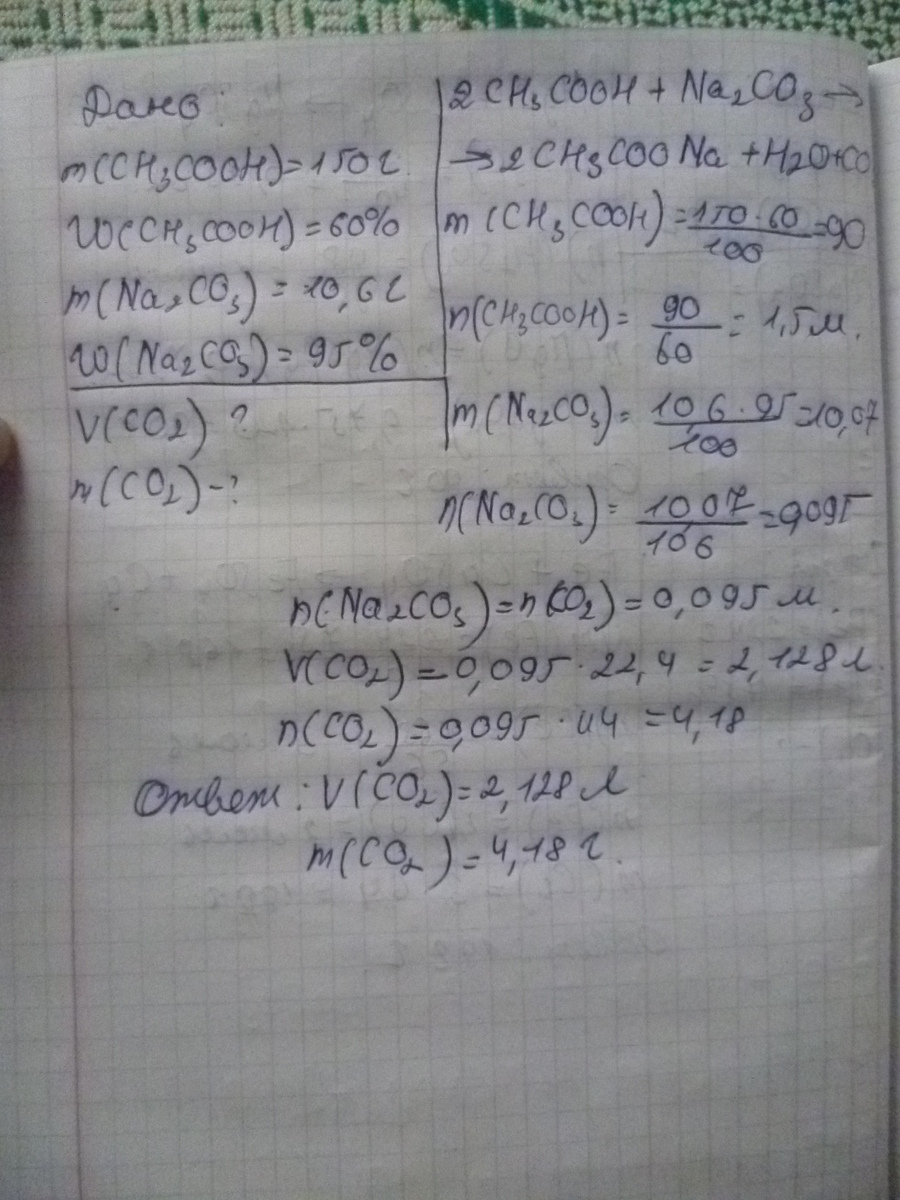 Дано:
m(CH₃COOH)=150г.
W(CH₃COOH)=60%
m(Na₂CO₃)=10,6г
W(Na₂CO₃)=95%
V(CO₂) ?
m(CO₂)-?
2CH₃COOH + Na₂CO₃→
→2CH₃COONa +H2O+CO
m(CH₃COOH)=150·60/100=90
n(CH₃COOH)=90/60=1,5м.
m(Na₂CO₃)=10,6·95/100=10,07
n(Na₂CO₃)=10,07/106=0,095
n(Na₂CO₃)=n(CO₂)=0,095м.
V(CO₂)=0,095·22,4=2,128л.
n(CO₂)=0,095·44=4,18
Ответ: V(CO₂)=2,128л
m(CO₂)=4,18г.